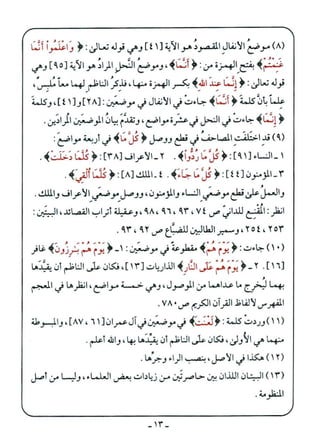 (٨) موضعُ الأنفالِ المقصودُ هو الآية [٤١] وهي قوله تعالىٰ: ﴿ وَٱعْلَمُوٓا۟ أَنَّمَا
غَنِمْتُم ﴾ بفتح الهمزة من: ﴿ أَنَّمَا ﴾، وموضعُ النَّحل المرادُ هو الآية [٩٥] وهي
قوله تعالىٰ: ﴿ إِنَّمَا عِندَ ٱللَّهِ ﴾ بكسر الهمزة منها، فذِكرُ الناظم لهما معاً مُلبِسٌ،
علماً بأنَّ كلمة ﴿ أَنَّمَا ﴾ جاءتْ في الأنفال في موضعَين: [٢٨] و[٤١]، وكلمةَ
﴿ إِنَّمَا ﴾ جاءتْ في النحل في عشَرة مواضع، وتقدَّم بيانُ الموضعَين المُرادَين.
(٩) قد اختلفَت المصاحفُ في قطع ووصل ﴿ كُلَّ مَا ﴾ في أربعة مواضعَ:
١ - النساء [٩١]: ﴿ كُلَّ مَا رُدُّوٓا۟ ﴾. ٢ - الأعراف [٣٨]: ﴿ كُلَّمَا دَخَلَتْ ﴾.
٣ - المؤمنون [٤٤]: ﴿ كُلَّ مَا جَآءَ ﴾. ٤ - الملك [٨]: ﴿ كُلَّمَآ أُلْقِىَ ﴾.
والعملُ علىٰ قطعِ موضعَي النساء والمؤمنون، ووصلِ موضعَي الأعراف والملك.
انظر: المُقْنِع للداني ص ٧٤، ٩٣، ٩٦، ٩٨، وعقيلة أتراب القصائد، البيتَين:
٢٥٣، ٢٥٤، وسمير الطالبين للضَّبّاع ص ٩٢، ٩٣.
(١٠) جاءت: ﴿ يَوْمَ هُمْ ﴾ مقطوعةً في موضعَين: ١ - ﴿ يَوْمَ هُم بَٰرِزُونَ ﴾ غافر
[١٦]. ٢ - ﴿ يَوْمَ هُمْ عَلَى ٱلنَّارِ ﴾ الذاريات [١٣]، فكان علَى الناظم أن يقيِّدَها
بهما ليُخرِج ما عداهما من الموصول، وهي خمسة مواضع، انظرها في المعجم
المفهرس لألفاظ القرآن الكريم ص ٧٨٠.
(١١) وردتْ كلمة: ﴿ لَعْنَتَ ﴾ في موضعَين في آل عمران [٦١، ٨٧]، والمبسوطة
منهما هي الأُولىٰ، فكان علَى الناظم أن يقيِّدَها بها، والله أعلم.
(١٢) هكذا في الأصل، بنصب الراء وجرِّها.
(١٣) البيتان اللذان بين حاصرتَين من زيادات بعض العلماء، وليسا من أصل
المنظومة.
- ١٣ -